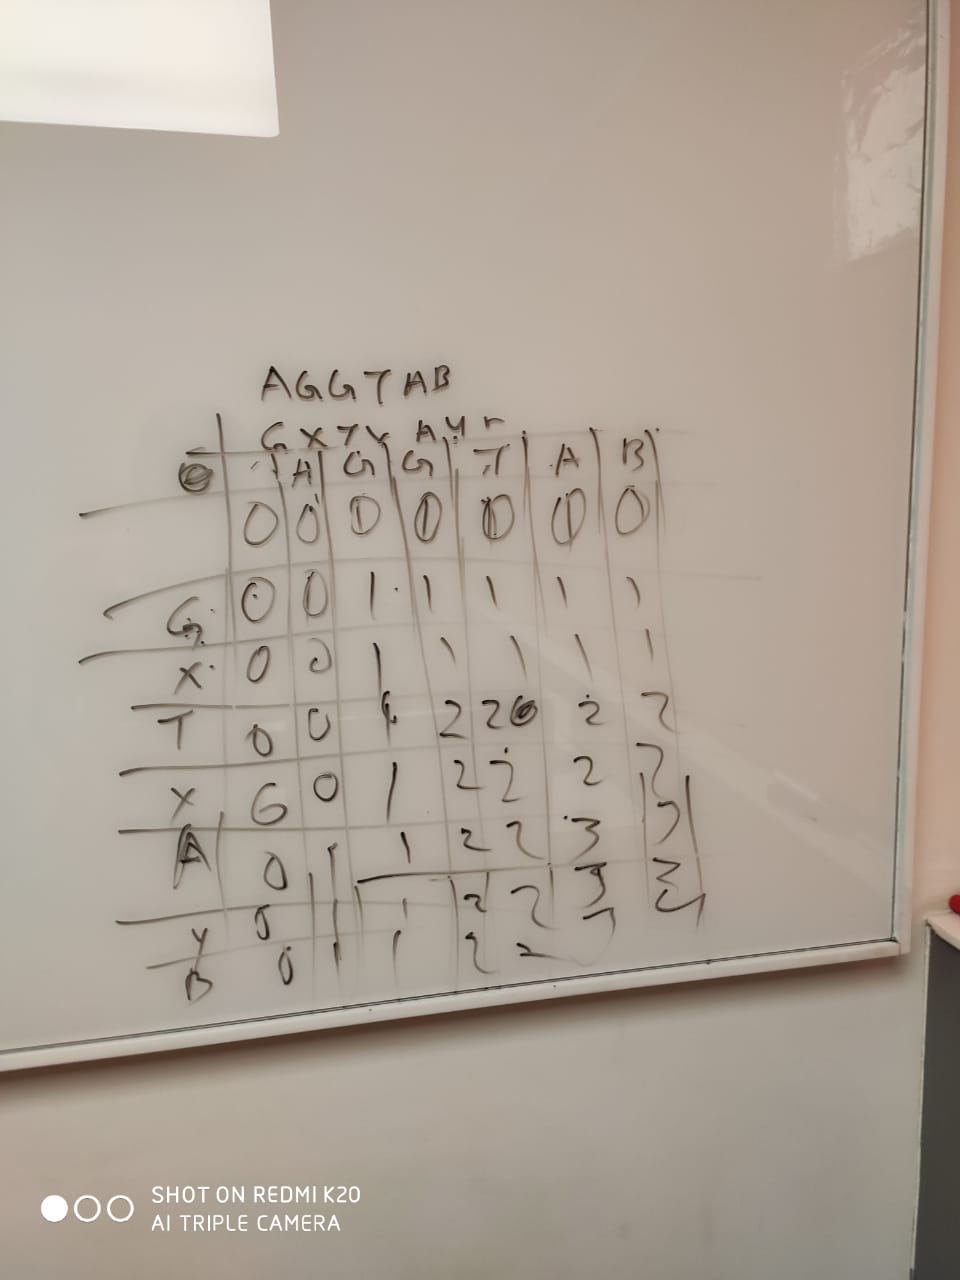 AGGTAB
G X T X A Y
A G G T A B
0 0 0 0 0 0 0
G 0 0 1 1 1 1 1
X 0 0 1 1 1 1 1
T 0 0 1 2 2 2 2
X 0 0 1 2 2 2 2
A 0 1 1 2 2 3 3
Y 0 1 1 2 2 3 3
B 0 1 1 2 2
SHOT ON REDMI K20
AI TRIPLE CAMERA